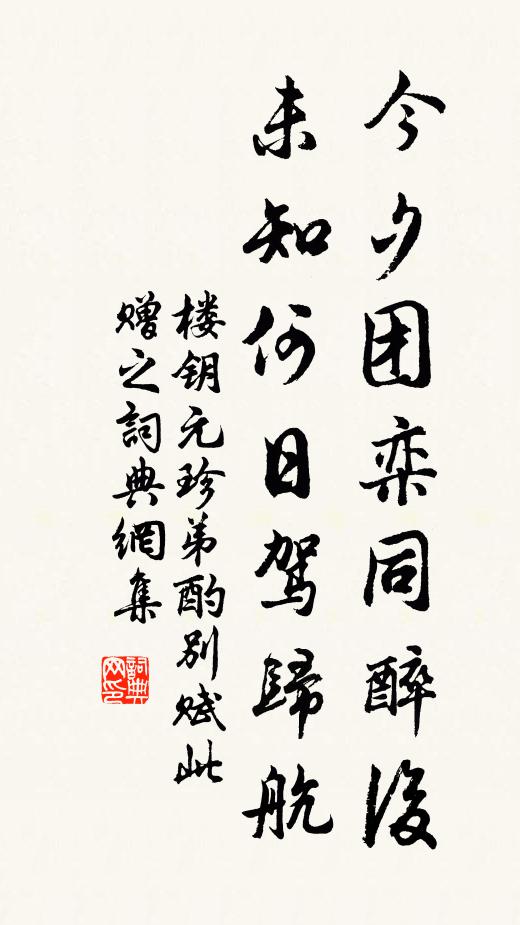 今夕团栾同醉後
未知何日驾歸航
楼钥元珍弟酌别赋此
赠之詞典網集
詞典網印